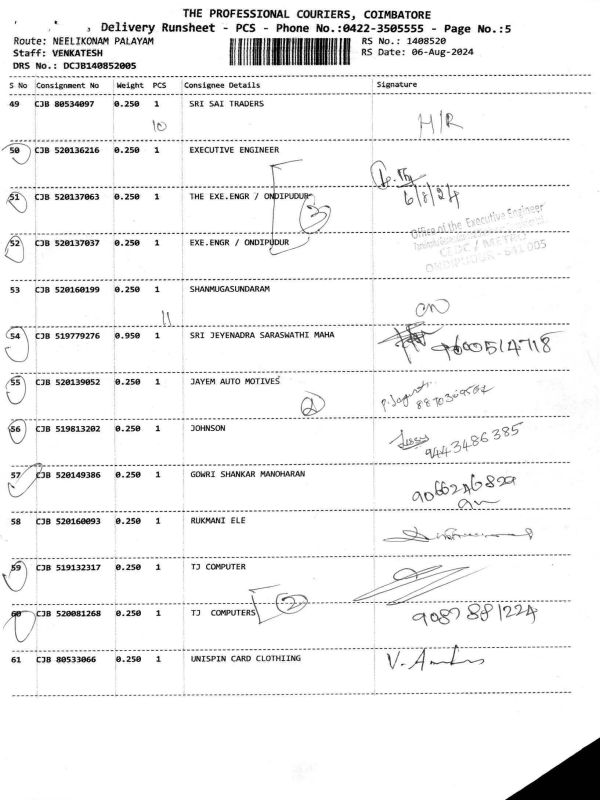 THE PROFESSIONAL COURIERS, COIMBATORE
Delivery Runsheet - PCS - Phone No.:0422-3505555 - Page No.:5
Route: NEELIKONAM PALAYAM RS No.: 1408520
Staff: VENKATESH RS Date: 06-Aug-2024
DRS No.: DCJB140852005
S No Consignment No Weight PCS Consignee Details Signature
49 CJB 80534097 0.250 1 SRI SAI TRADERS
10 H/R
50 CJB 520136216 0.250 1 EXECUTIVE ENGINEER
51 CJB 520137063 0.250 1 THE EXE.ENGR / ONDIPUDUR
3 6/8/24
Office of the Executive Engineer
52 CJB 520137037 0.250 1 EXE.ENGR / ONDIPUDUR
CEDC / METRO
ONDIPUDUR - 641 005
53 CJB 520160199 0.250 1 SHANMUGASUNDARAM
11
54 CJB 519779276 0.950 1 SRI JEYENADRA SARASWATHI MAHA
9600514718
55 CJB 520139052 0.250 1 JAYEM AUTO MOTIVES
2
56 CJB 519813202 0.250 1 JOHNSON
9443486385
57 CJB 520149386 0.250 1 GOWRI SHANKAR MANOHARAN
58 CJB 520160093 0.250 1 RUKMANI ELE
59 CJB 519132317 0.250 1 TJ COMPUTER
2
60 CJB 520081268 0.250 1 TJ COMPUTERS 9087881224
61 CJB 80533066 0.250 1 UNISPIN CARD CLOTHIING